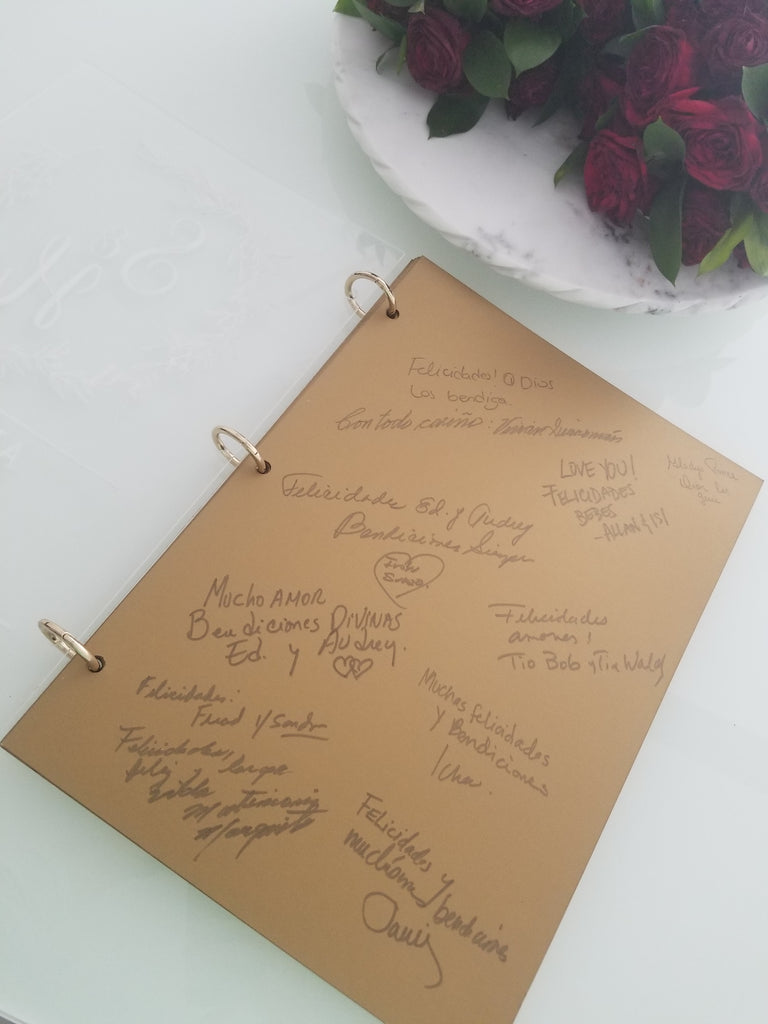 Felicidades! Q Dios
Los bendiga.
Con todo cariño: Vivian
LOVE YOU!
FELICIDADES
BEBES
-ALLAN & ISI
Felicidades Ed. y Audrey
Bendiciones Siempre
Mucho AMOR
Bendiciones DIVINAS
Ed. y Audrey.
Felicidades
amores!
Tio Bob y Tia Waldy
Felicidades:
Fred y Sandra
Muchas felicidades
y Bendiciones
Icha.
Felicidades, larga
feliz
vida
Felicidades y
muchísimas bendiciones